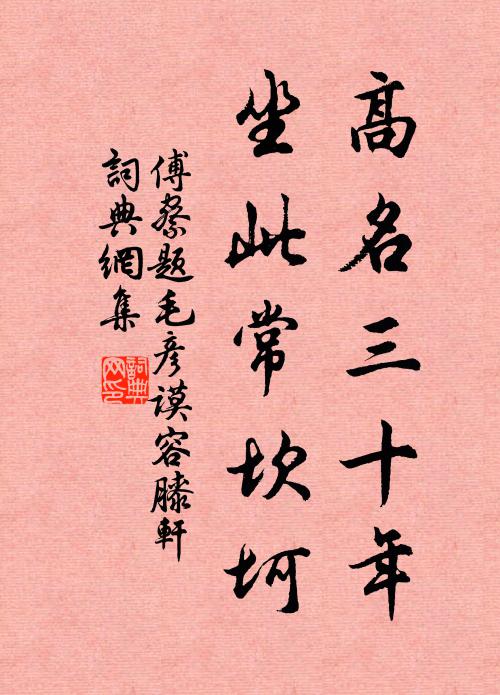 高名三十年
坐此常坎坷
傅察題毛彥謨容膝軒
詞典網集
詞典
网印